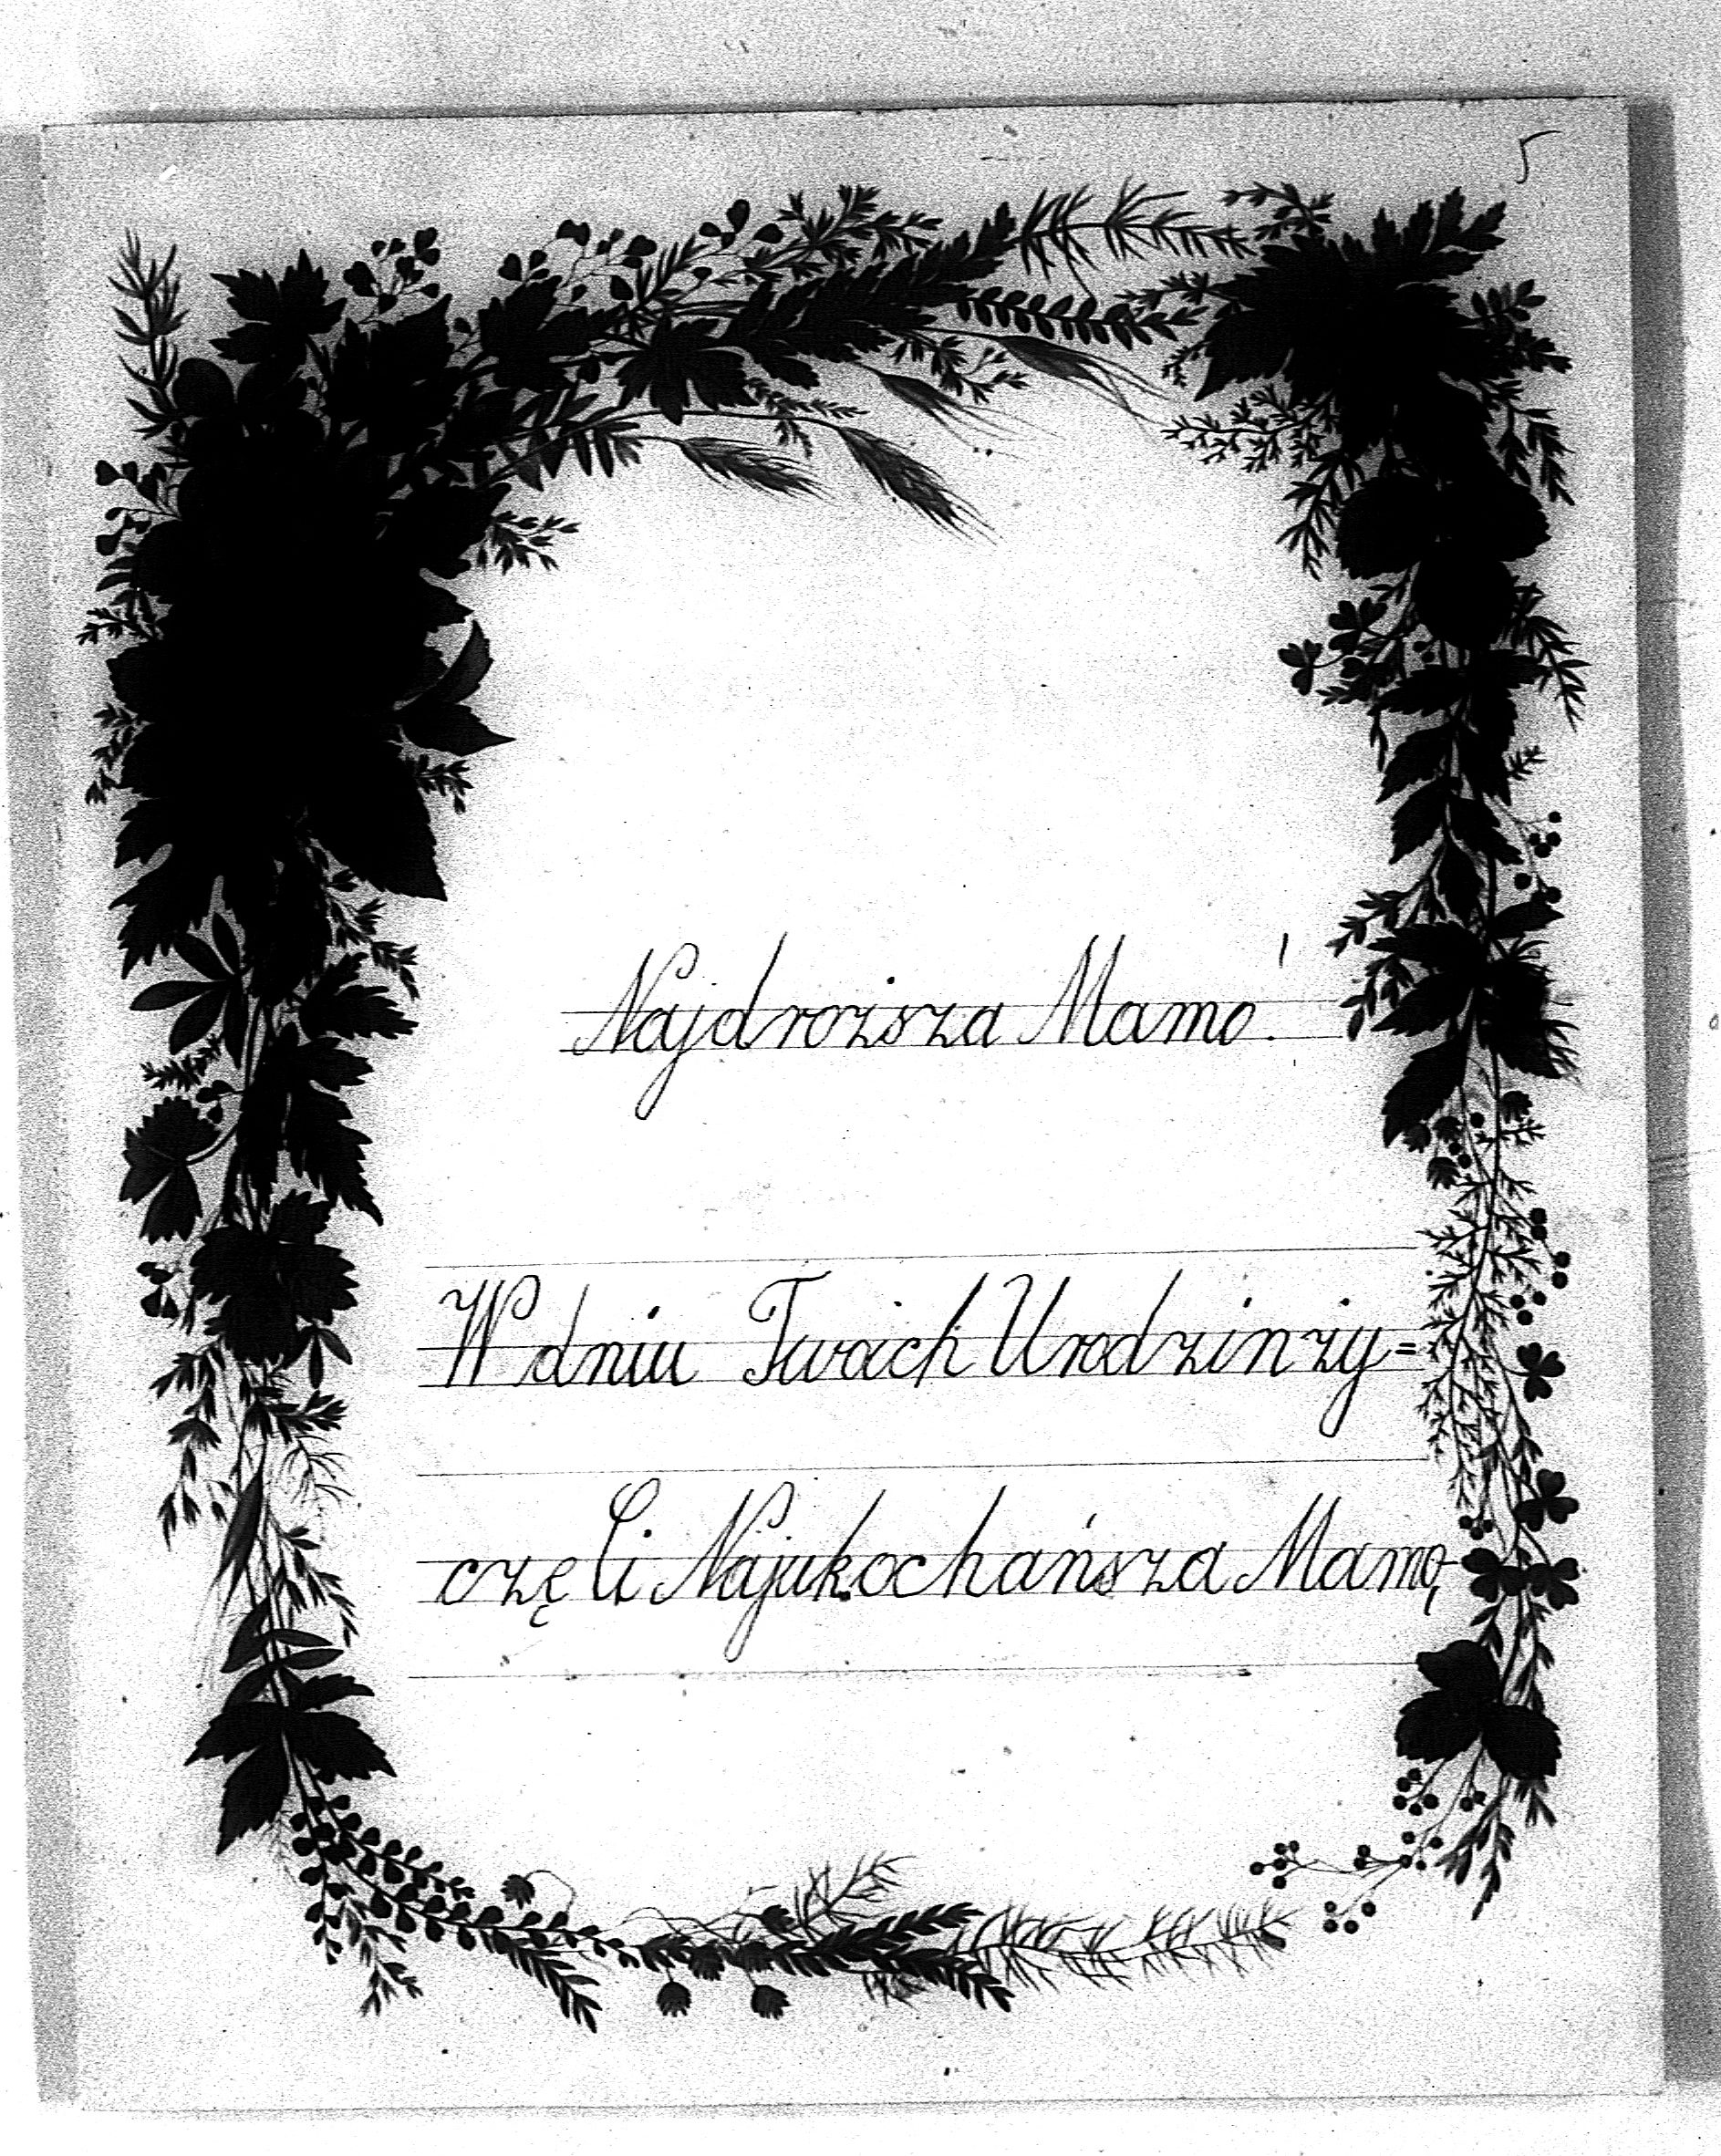 5
Najdrozsza Mamo!
W dniu Twoich Urodzin ży=
czę Ci Najukochańsza Mamo,